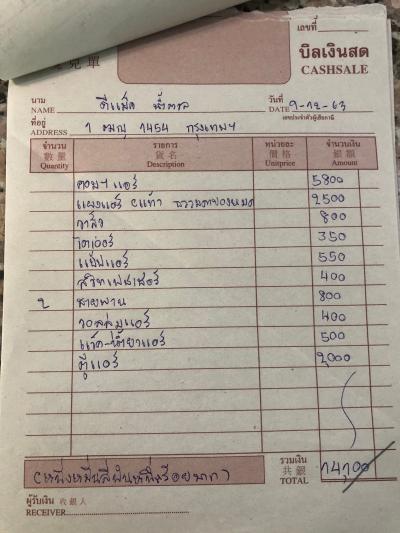 兌單
เลขที่
บิลเงินสด
CASHSALE
นาม ดีแม็ก น้ำตาล วันที่ 9-12-63
NAME DATE
เลขประจำตัวผู้เสียภาษี
ที่อยู่ 1 ฒญ 1454 กรุงเทพฯ
ADDRESS
จำนวน รายการ หน่วยละ จำนวนเงิน
數量 貨名 價格 銀額
Quantity Description Unitprice Amount
คอมฯแอร์ 5800
แผงแอร์ 2500
วาล์ว 800
ไดเออร์ 350
แป๊ปแอร์ 550
สวิทเพรสเชอร์ 400
2 สายพาน 800
400
500
ตู้แอร์ 2,000
รวมเงิน
共銀
TOTAL 14,100
(หนึ่งหมื่นสี่พันหนึ่งร้อยบาท)
ผู้รับเงิน 收銀人
RECEIVER